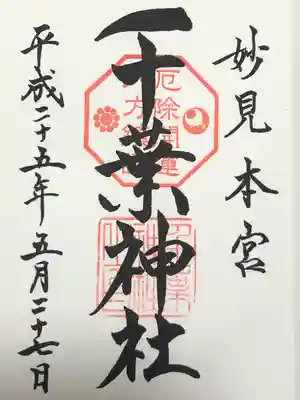 妙見本宮
千葉神社
厄除開運
平成二十五年 五月二十七日